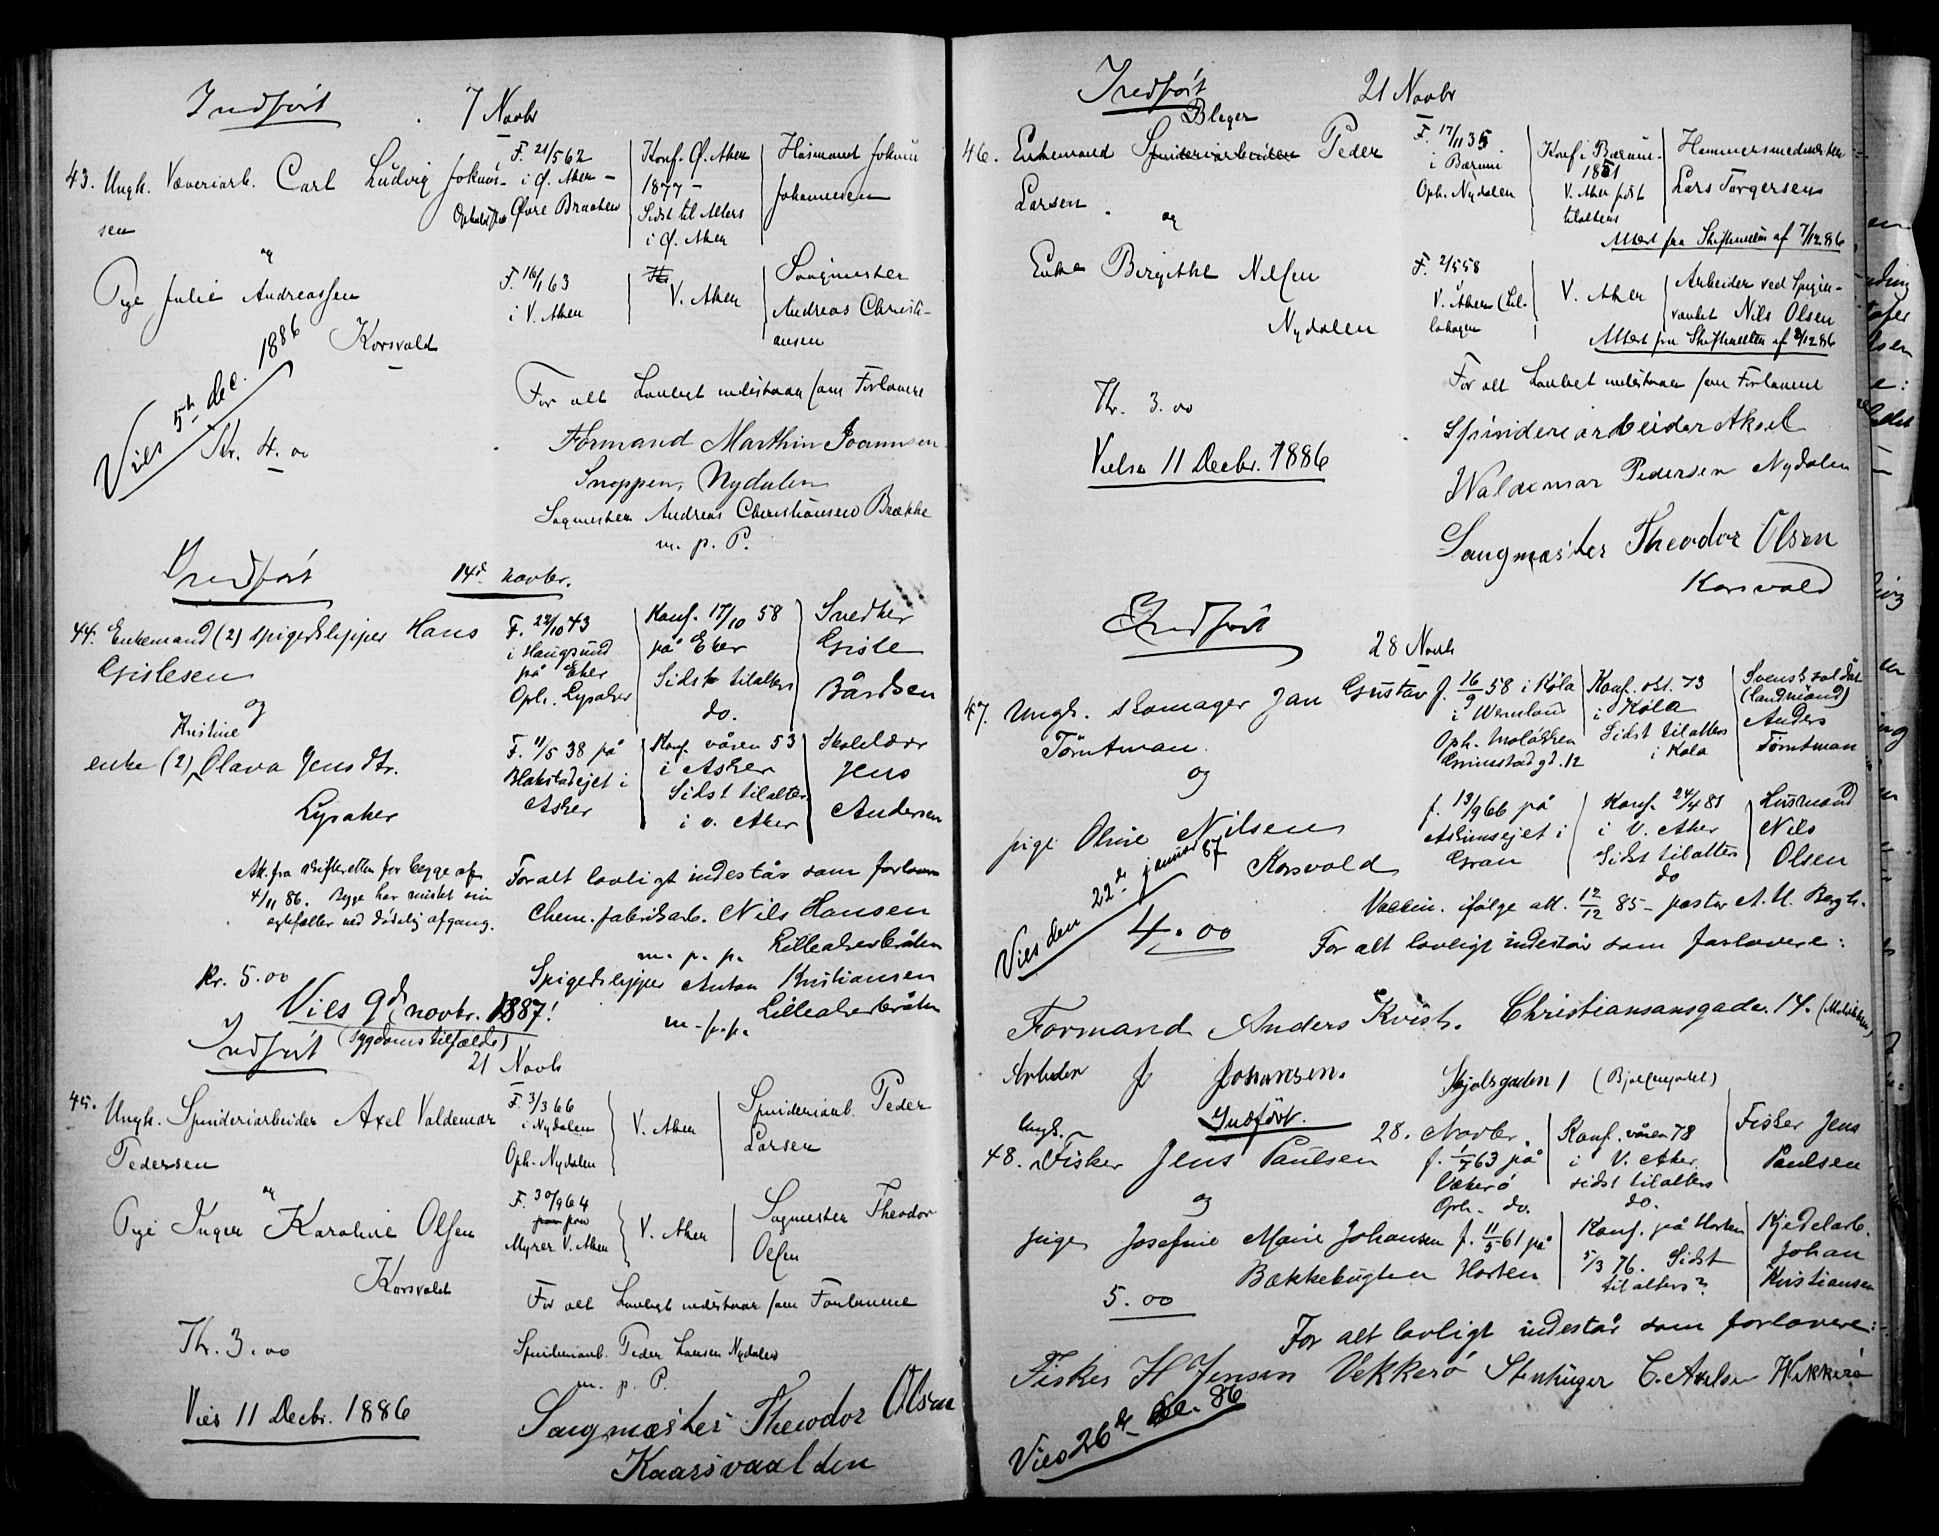 Indført
7 Novbr
43. Ungk. Væveriarb. Carl Ludvig Johans-
sen
F. 21/5 62
i Ø. Aker –
Øvre Braaten
Konf. Ø. Aker
1877 –
Sidst til Alters
i Ø. Aker
Husmand Johan
Johannessen
og
Pige Julie Andreassen
Korsvold
F. 16/1 63
i V. Aker
V. Aker
Saugmester
Andreas Christi-
ansen
Vies 5te dec. 1886
Kr. 4.00
For alt Lovligt indestaar som Forlovere
Formand Marthin
Snoppen, Nydalen
Sagmester Andreas Christiansen Brække
m. p. P.
Indført
14de novbr.
44. Enkemand (2) spigerslipper Hans
Gislesen
F. 22/10 43
i Haugsund
på Eker
Oph. Lysaker
Konf. 17/10 58
på Eker
Sidst tilalters
do.
Snedker
Gisle
Bårdsen
og
Kristine
enke (2) Olava Jensdtr.
Lysaker
F. 11/5 38 på
Blakstadejet i
Asker
Konf. våren 53
i Asker
Sidst tilalters
i v. Aker
Skolelærer
Jens
Andersen
Att. fra skifteretten for begge af
4/11 86. Begge har mistet sin
ægtefælle ved dødelig afgang.
For alt lovligt indestår som forlovere
Chem. fabrikarb. Nils Hansen
m. p. p. Lilleakerbråten
Spigerslipper Anton Kristiansen
m. p. p. Lilleakerbråten
Kr. 5.00
Vies 9de novbr. 1887!
(Sygdomstilfælde)
Indført
21 Novb
45. Ungk. Spinderiarbeider Axel Valdemar
Pedersen
F. 3/3 66
i Nydalen
Oph. Nydalen
V. Aker
Spinderiarb. Peder
Larsen
og
Pige Inger Karoline Olsen
Korsvold
F. 30/9 64
Myrer V. Aker
V. Aker
Sagmester Theodor
Olsen
For alt Lovligt indestaar som Forlovere
Kr. 3.00
Spinderiarb. Peder Larsen Nydalen
m. p. P.
Vies 11 Decbr. 1886
Saugmæster Theodor Olsen
Kaarsvaalden
Indført
21 Novbr
Bleger
46. Enkemand Spinderiarbeider Peder
Larsen
F. 17/11 35
i Bærum
Oph. Nydalen
Konf. i Bærum
1851
V. Aker sidst
tilalters
Hammersmedmester
Lars Torgersen
Attest fra Skifteretten af 7/12 86
og
Enke Birgithe Nilsen
Nydalen
F. 2/5 58
V. Aker (Lil-
lohagen
V. Aker
Arbeider ved Spiger-
værket Nils Olsen
Attest fra Skifteretten af 9/12 86
Kr. 3.00
Viede 11 Decbr. 1886
For alt Lovligt indestaar som Forlovere
Spinderiarbeider Aksel
Waldemar Pedersen Nydalen
Saugmæster Theodor Olsen
Korsvold
Indført
28 Novb
47. Ungk. skomager Jan Gustav
Törntman.
f. 16/9 58 i Köla
i Wermland
Oph. Moløkken
Grimstadgd. 12
Konf. okt. 73
i Köla
Sidst tilalters
i Kola
Svensk soldat
(landmand)
Anders
Törntman
og
pige Oline Nilsen
Korsvold
f. 13/9 66 på
Askimsejet i
Gran
Konf. 24/4 81
i V. Aker
Sidst tilalters
do
Husmand
Nils
Olsen
Vies den 22de januar 87
4.00
Vaccin. ifølge att. 12/12 85 – pastor A. U. Bergh.
For alt lovligt indestår som forlovere:
Formand Anders Kvist. Christiansansgaden 14.
Arbeider J Johansen. Skjolsgaden 1
Indført.
28. Novbr.
Ungk.
48. Fisker Jens Paulsen
f. 1/7 63 på
Vækerö
Oph. do.
Konf. våren 78
i V. Aker
sidst tilalters
do.
Fisker Jens
Paulsen
og
pige Josefine Marie Johansen f. 11/5 61 på
Bækkebugten Horten
Konf. på Horten
5/3 76. Sidst
tilalters?
Kjedelarb.
Johan
Kristiansen
5.00
For alt lovligt indestår som forlovere:
Fisker H Jensen Vekkerö Stenhuger C. Axelsen Wekkerö
Vies 26de dec. 86